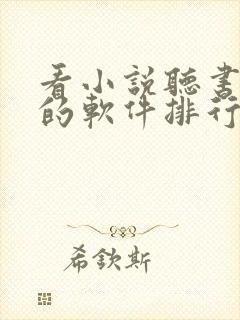 看小説聽書
的軟件排行
希欽斯